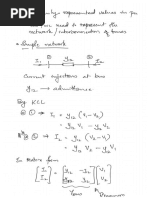 represented values in pu
need to represent the
network / interconnection of lines
Simple network
I₁ y₁₂ I₂
Current injections at bus
y₁₂ → admittance
By KCL
@ ① → I₁ = y₁₂ (V₁ - V₂)
= y₁₂ V₁ - y₁₂ V₂
@ ② → I₂ = y₁₂ (V₂ - V₁)
= y₁₂ V₂ - y₁₂ V₁
In matrix form
[I₁ I₂] = [y₁₂ -y₁₂ -y₁₂ y₁₂] [V₁ V₂]